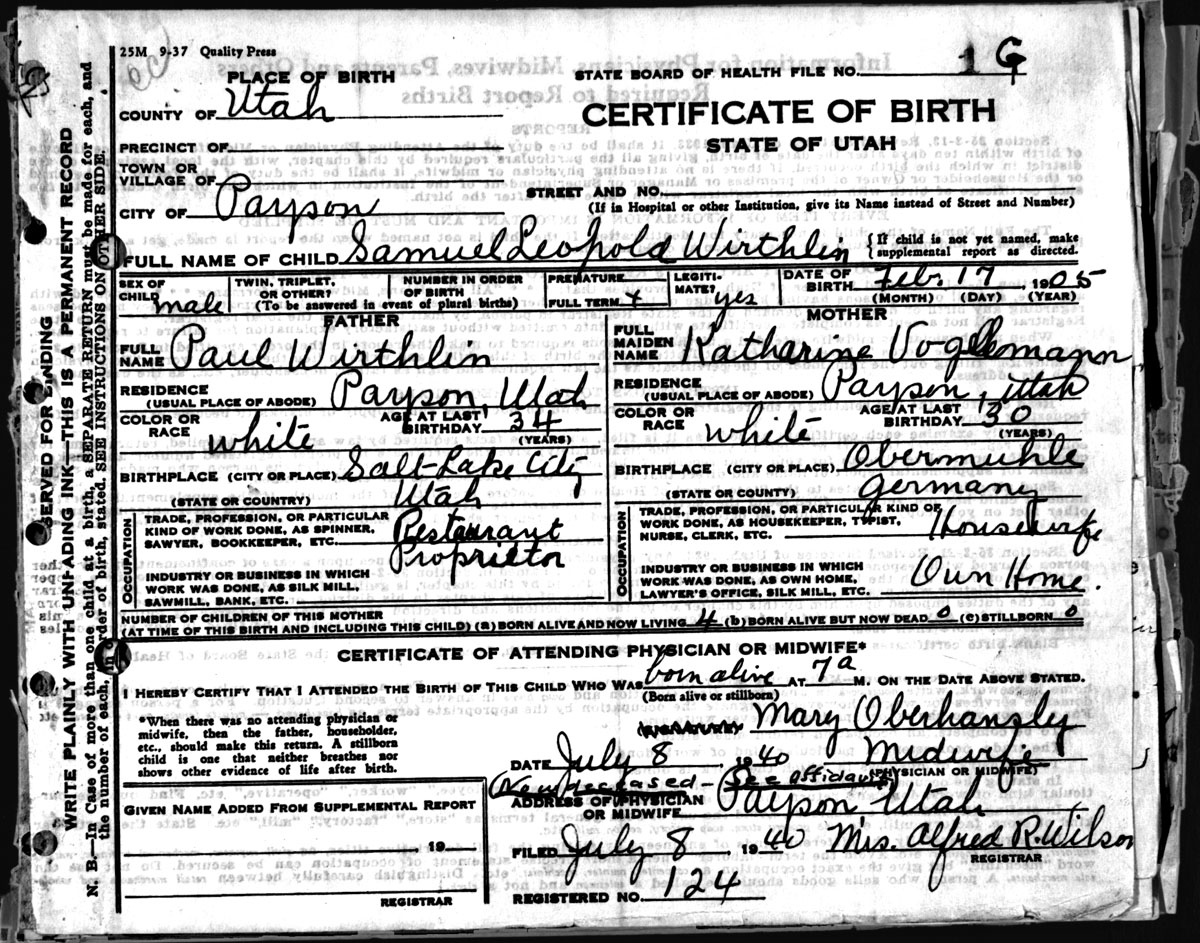 25M 9-37 Quality Press
PLACE OF BIRTH
STATE BOARD OF HEALTH FILE NO. 1 G
COUNTY OF Utah
CERTIFICATE OF BIRTH
STATE OF UTAH
PRECINCT OF
TOWN OR
VILLAGE OF
STREET AND NO.
CITY OF Payson
(If in Hospital or other Institution, give its Name instead of Street and Number)
FULL NAME OF CHILD Samuel Leopold Wirthlin
{If child is not yet named, make
supplemental report as directed.
SEX OF
CHILD male
TWIN, TRIPLET,
OR OTHER?
NUMBER IN ORDER
OF BIRTH
(To be answered in event of plural births)
PREMATURE
FULL TERM x
LEGITI-
MATE? yes
DATE OF
BIRTH Feb. 17 1905
(MONTH) (DAY) (YEAR)
FATHER
FULL
NAME Paul Wirthlin
RESIDENCE
(USUAL PLACE OF ABODE) Payson, Utah
COLOR OR
RACE white
AGE AT LAST
BIRTHDAY 34
(YEARS)
BIRTHPLACE (CITY OR PLACE) Salt Lake City
(STATE OR COUNTRY) Utah
OCCUPATION
TRADE, PROFESSION, OR PARTICULAR
KIND OF WORK DONE, AS SPINNER,
SAWYER, BOOKKEEPER, ETC. Restaurant
Proprietor
INDUSTRY OR BUSINESS IN WHICH
WORK WAS DONE, AS SILK MILL,
SAWMILL, BANK, ETC.
MOTHER
FULL
MAIDEN
NAME Katharine
RESIDENCE
(USUAL PLACE OF ABODE) Payson, Utah
COLOR OR
RACE white
AGE AT LAST
BIRTHDAY 30
(YEARS)
BIRTHPLACE (CITY OR PLACE) Obermuhle
(STATE OR COUNTY) Germany
OCCUPATION
TRADE, PROFESSION, OR PARTICULAR KIND OF
WORK DONE, AS HOUSEKEEPER, TYPIST,
NURSE, CLERK, ETC. Housewife
INDUSTRY OR BUSINESS IN WHICH
WORK WAS DONE, AS OWN HOME,
LAWYER'S OFFICE, SILK MILL, ETC. Own Home.
NUMBER OF CHILDREN OF THIS MOTHER
(AT TIME OF THIS BIRTH AND INCLUDING THIS CHILD) (a) BORN ALIVE AND NOW LIVING 4 (b) BORN ALIVE BUT NOW DEAD 0 (c) STILLBORN 0
CERTIFICATE OF ATTENDING PHYSICIAN OR MIDWIFE*
I HEREBY CERTIFY THAT I ATTENDED THE BIRTH OF THIS CHILD WHO WAS born alive AT 7 a M. ON THE DATE ABOVE STATED.
(Born alive or stillborn)
*When there was no attending physician or
midwife, then the father, householder,
etc., should make this return. A stillborn
child is one that neither breathes nor
shows other evidence of life after birth.
(SIGNATURE) Mary Oberhansly
DATE July 8 1940 Midwife
(PHYSICIAN OR MIDWIFE)
(Now deceased - See affidavit)
ADDRESS OF PHYSICIAN
OR MIDWIFE Payson, Utah
GIVEN NAME ADDED FROM SUPPLEMENTAL REPORT
19
REGISTRAR
FILED July 8 1940 Mrs. Alfred R. Wilson
REGISTRAR
REGISTERED NO. 124
SERVED FOR BINDING
WRITE PLAINLY WITH UNFADING INK—THIS IS A PERMANENT RECORD
N. B.—In Case of more than one child at a birth, a SEPARATE RETURN must be made for each, and
the number of each, in order of birth, stated. SEE INSTRUCTIONS ON OTHER SIDE.